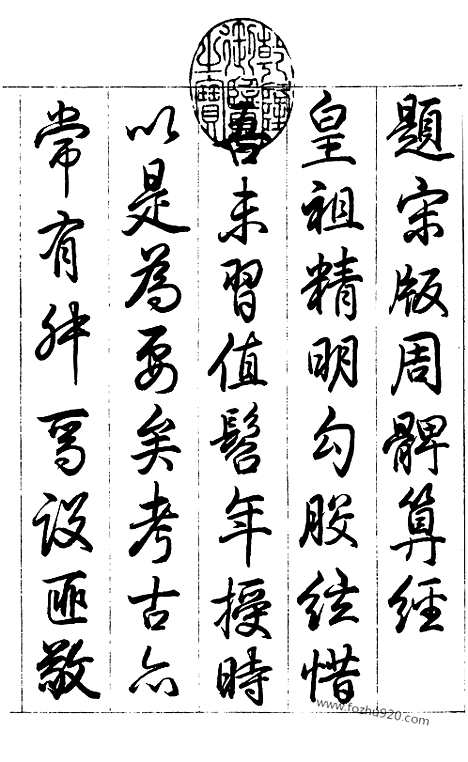 乾隆御覽之寶
題宋版周髀算經
皇祖精明勾股絃惜
吾未習值髫年授時
以是為要矣考古亦
常有舛焉設匪敬
www.fozhu920.com